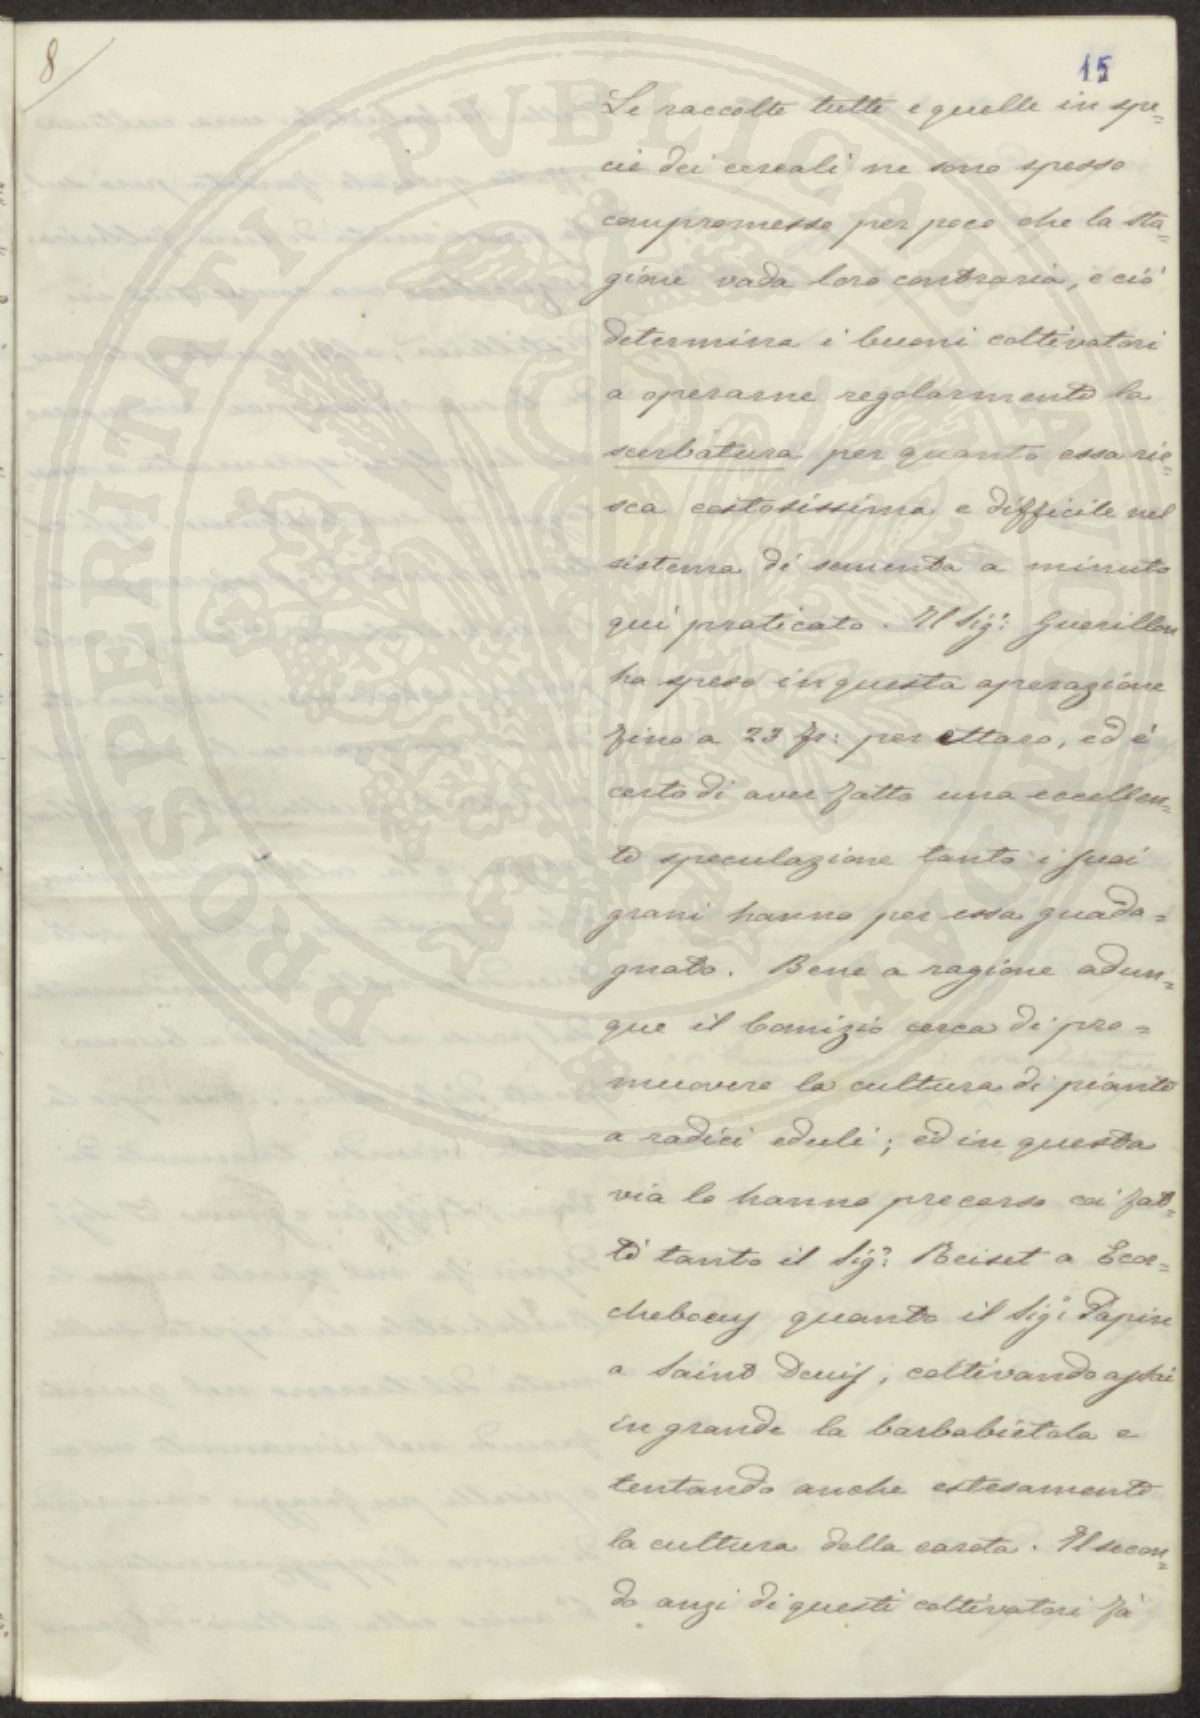 8
15
Le raccolte tutte e quelle in spe=
cie dei cereali ne sono spesso
compromesse per poco che la sta=
gione vada loro contraria, e ciò
determina i buoni coltivatori
a operarne regolarmente la
scerbatura per quanto essa rie=
sca costosissima e difficile nel
sistema di sementa a minuto
qui praticato. Il Sig: Guerillon
ha speso in questa operazione
fino a 23 fr: per ettaro, ed è
certo di aver fatto una eccellen=
te speculazione tanto i suoi
grani hanno per essa guada=
gnato. Bene a ragione adun=
que il Comizio cerca di pro=
muovere la cultura di piante
a radici eduli; ed in questa
via lo hanno precorso coi fat=
ti tanto il Sig: Reiset a Ecor=
chebœuf quanto il Sig: Papin
a Saint Denis, coltivando assai
in grande la barbabietola e
tentando anche estesamente
la cultura della carota. Il secon=
do anzi di questi coltivatori fà
PROSPERITATI PUBLICAE AUGENDAE